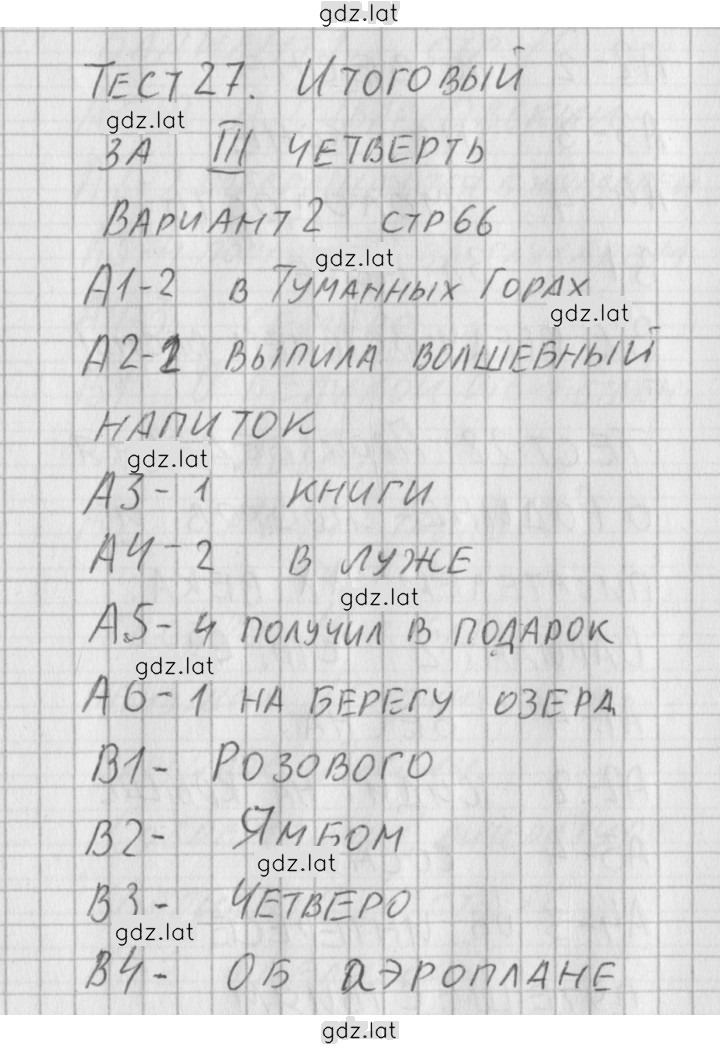 gdz.lat
Тест 27. Итоговый
gdz.lat
за III четверть
Вариант 2 стр 66
gdz.lat
А1-2 в Туманных Горах
gdz.lat
А2-2 выпила волшебный
напиток
gdz.lat
А3-1 книги
А4-2 в луже
gdz.lat
А5-4 получил в подарок
gdz.lat
А6-1 на берегу озера
В1- Розового
В2- Ямбом
gdz.lat
В3- Четверо
gdz.lat
В4- об аэроплане
gdz.lat